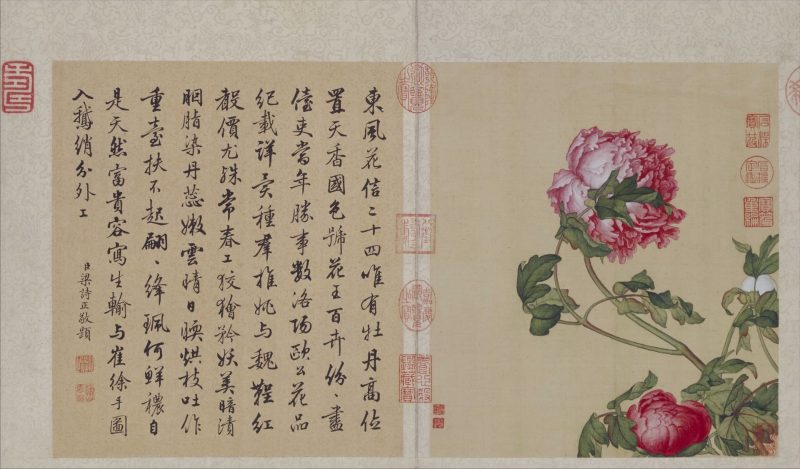 東風花信二十四唯有牡丹高位
置天香國色號花王百卉份〻盡
儓吏當年勝事數洛陽歐公花品
紀載詳異種羣推姚與魏鞓紅
聲價尤殊常春工狡獪矜妖美暗漬
胭脂染丹蕊嫩雲晴日暎烘枝吐作
重臺扶不起翩〻絳珮何鮮穠自
是天然富貴容寫生輸与崔徐手圖
入鵞綃分外工
臣梁詩正敬題